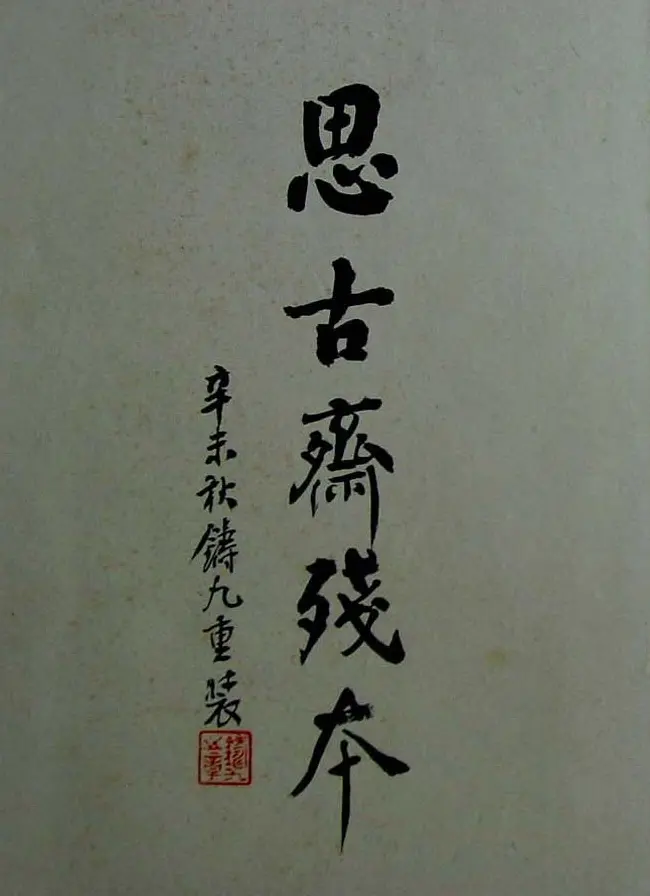 思古齋殘本
辛未秋鑄九重裝